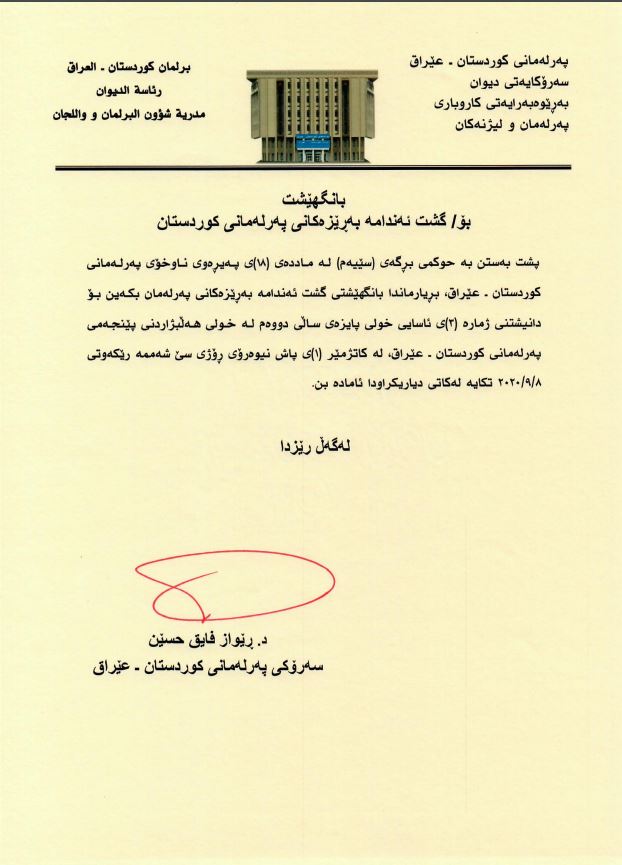 پەرلەمانی کوردستان ـ عێراق
سەرۆکایەتی دیوان
بەڕێوەبەرایەتی کاروباری
پەرلەمان و لیژنەکان
برلمان كوردستان ـ العراق
رئاسة الديوان
مدرية شؤون البرلمان و واللجان
بانگهێشت
بۆ/ گشت ئەندامە بەڕێزەکانی پەرلەمانی کوردستان
پشت بەستن بە حوکمی برگەی (سێیەم) لە ماددەی (١٨)ی پەیرەوی ناوخۆی پەرلەمانی
کوردستان ـ عێراق، بریارماندا بانگهێشتی گشت ئەندامە بەڕێزەکانی پەرلەمان بکەین بۆ
دانیشتنی ژمارە (٢)ی ئاسایی خولی پایزەی ساڵی دووەم لە خولی هەڵبژاردنی پێنجەمی
پەرلەمانی کوردستان ـ عێراق، لە کاتژمێر (١)ی پاش نیوەرۆی ڕۆژی سێ شەممە رێکەوتی
٢٠٢٠/٩/٨ تکایە لەکاتی دیاریکراودا ئامادە بن.
لەگەڵ رێزدا
د. ڕێواز فایق حسێن
سەرۆکی پەرلەمانی کوردستان ـ عێراق